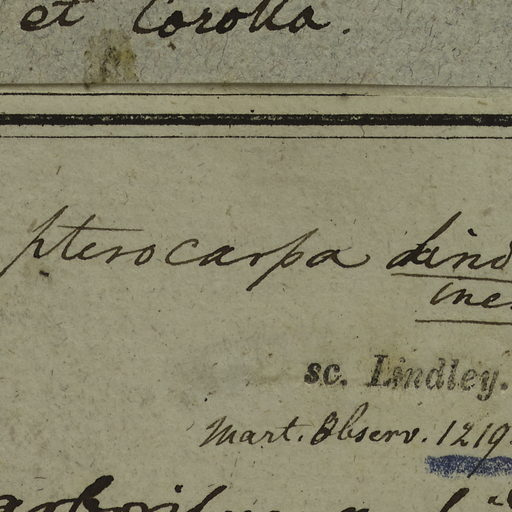 et Corolla.
pterocarpa Lind
ine
sc. Lindley.
Mart. Observ. 1219.